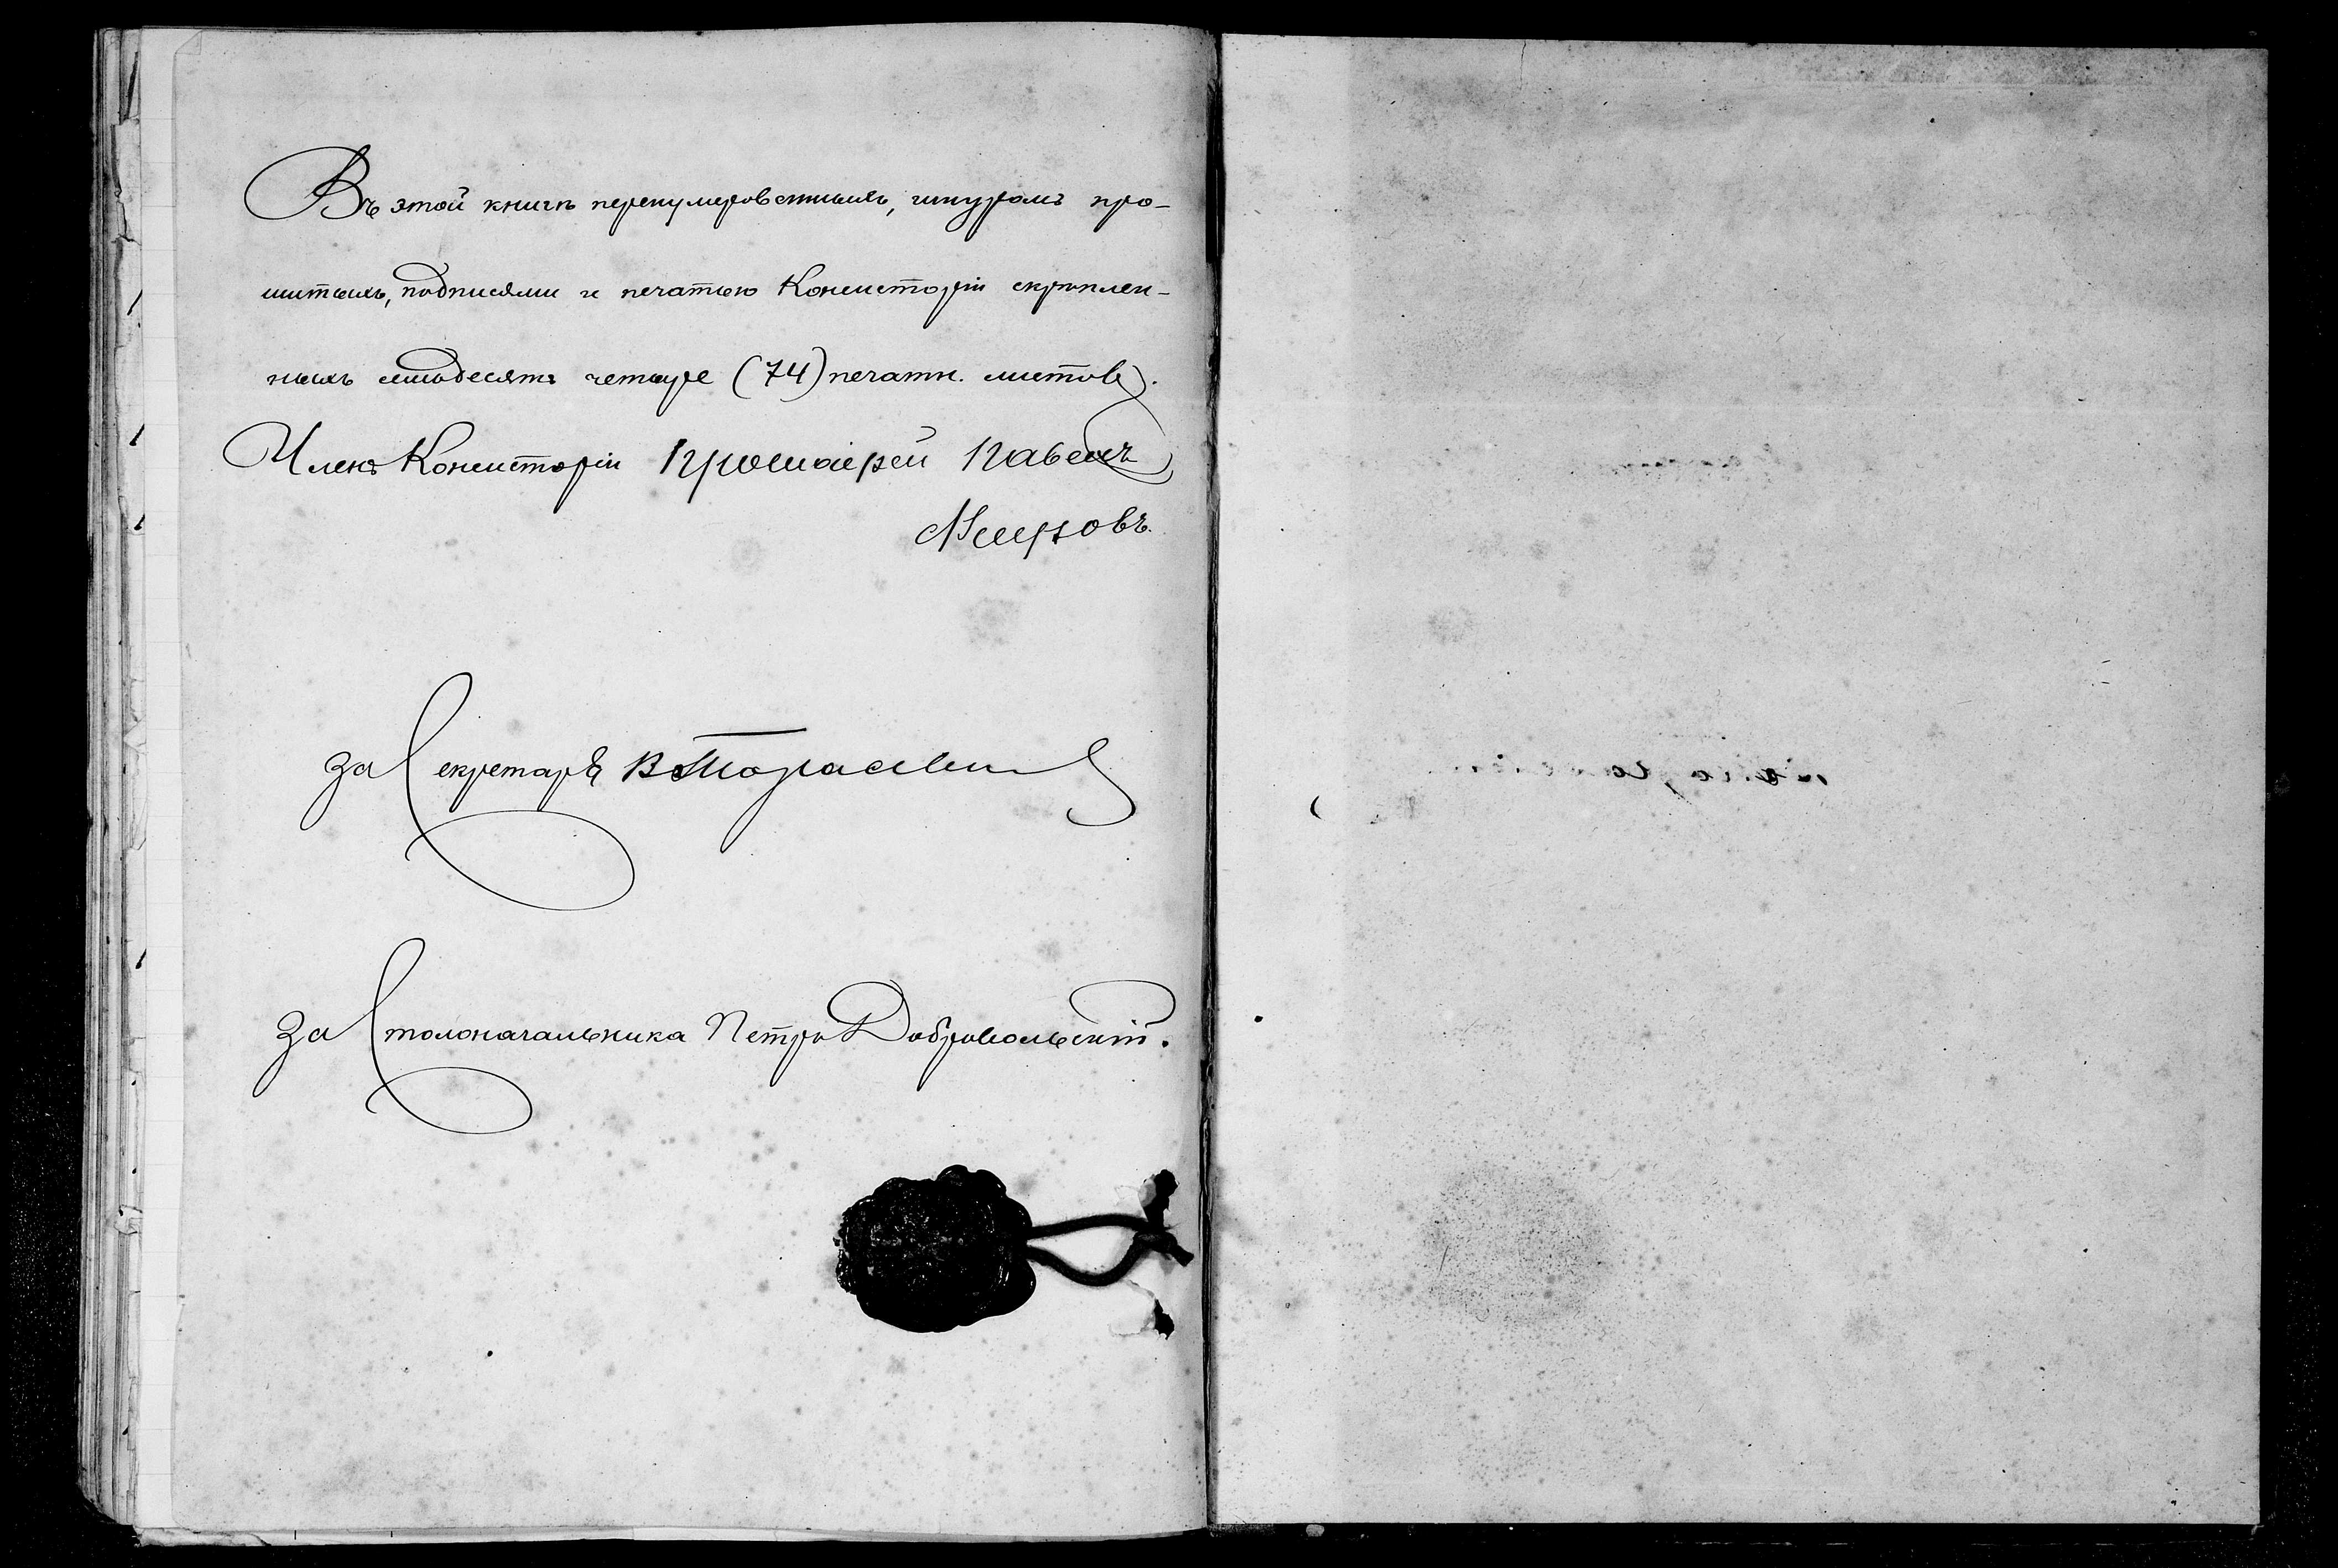 Въ этой книгѣ перенумерованныхъ, шнуромъ про-
шитыхъ, подписями и печатью Консисторіи скрѣплен-
ныхъ семьдесятъ четыре (74) печатн. листовъ.
Членъ Консисторіи Протоіерей Павелъ
За Секретаря В.
За Столоначальника Петръ Добровольскій.